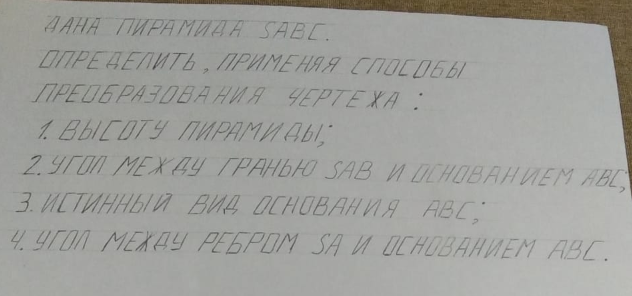 ДАНА ПИРАМИДА SABC.
ОПРЕДЕЛИТЬ, ПРИМЕНЯЯ СПОСОБЫ
ПРЕОБРАЗОВАНИЯ ЧЕРТЕЖА :
1. ВЫСОТУ ПИРАМИДЫ;
2. УГОЛ МЕЖДУ ГРАНЬЮ SAB И ОСНОВАНИЕМ ABC;
3. ИСТИННЫЙ ВИД ОСНОВАНИЯ ABC;
4. УГОЛ МЕЖДУ РЕБРОМ SA И ОСНОВАНИЕМ ABC.